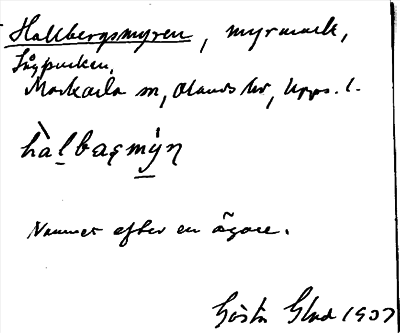 Hallbergsmyren, myrmark,
Morkarla sn, Olands hd, Upps. l.
hàlbaʂmy̍n
Namnet efter en ägare.
Gösta Glad 1907